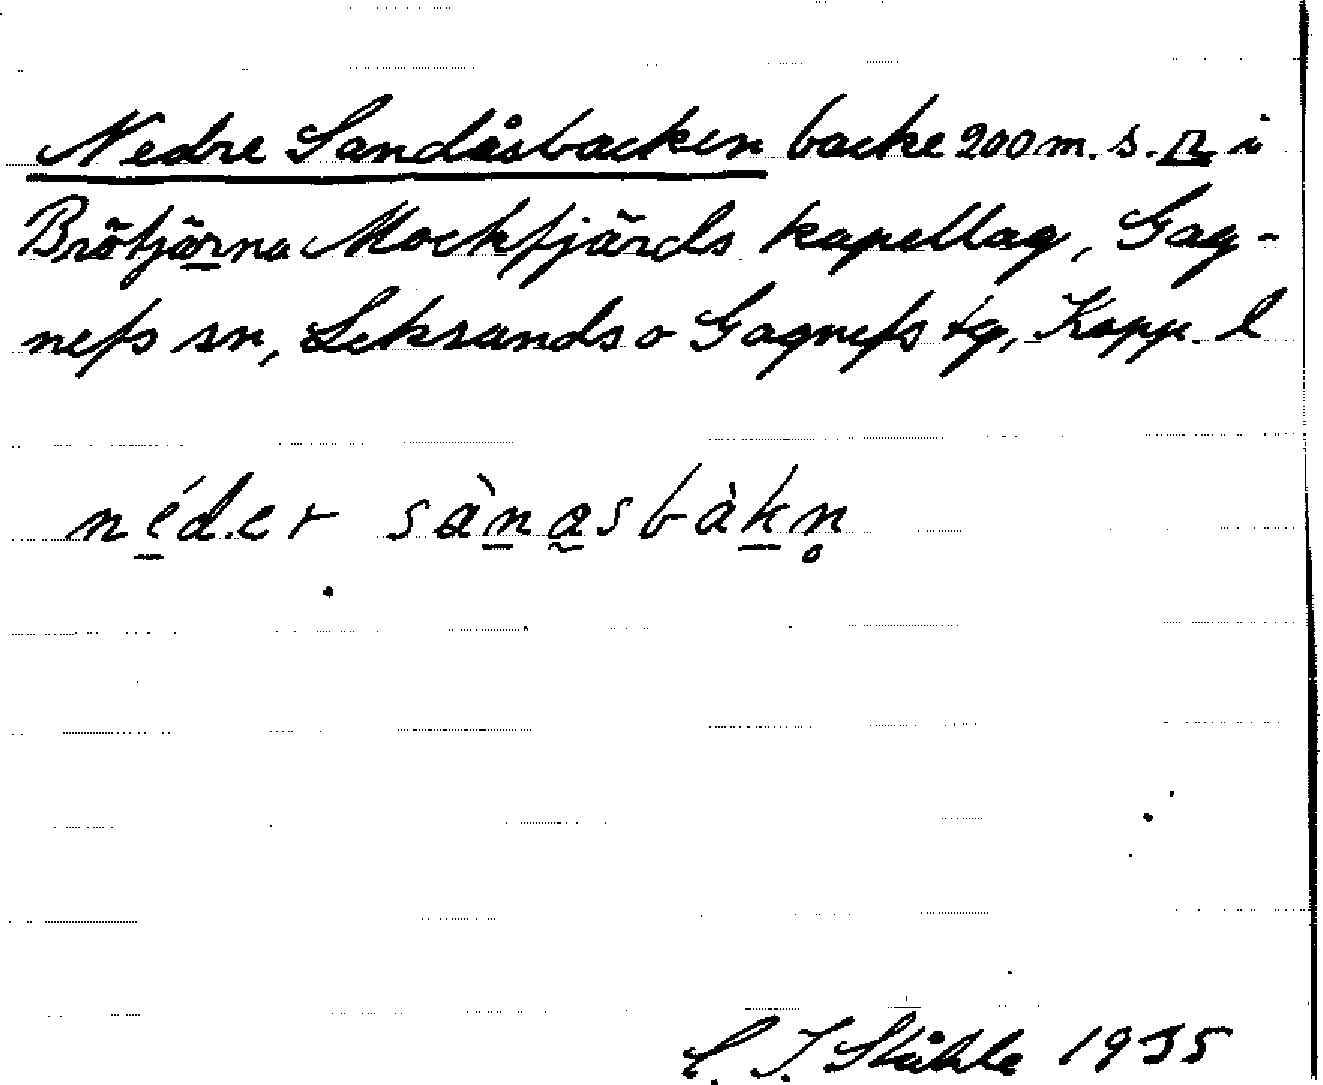 Nedre Sandåsbacken backe 200 m. s. n i
Brötjärna Mockfjärds kapellag, Gag-
nefs sn, Leksands o Gagnefs tg, Kopp. l
néder sànasbàkn̥
C. I. Ståhle 1935